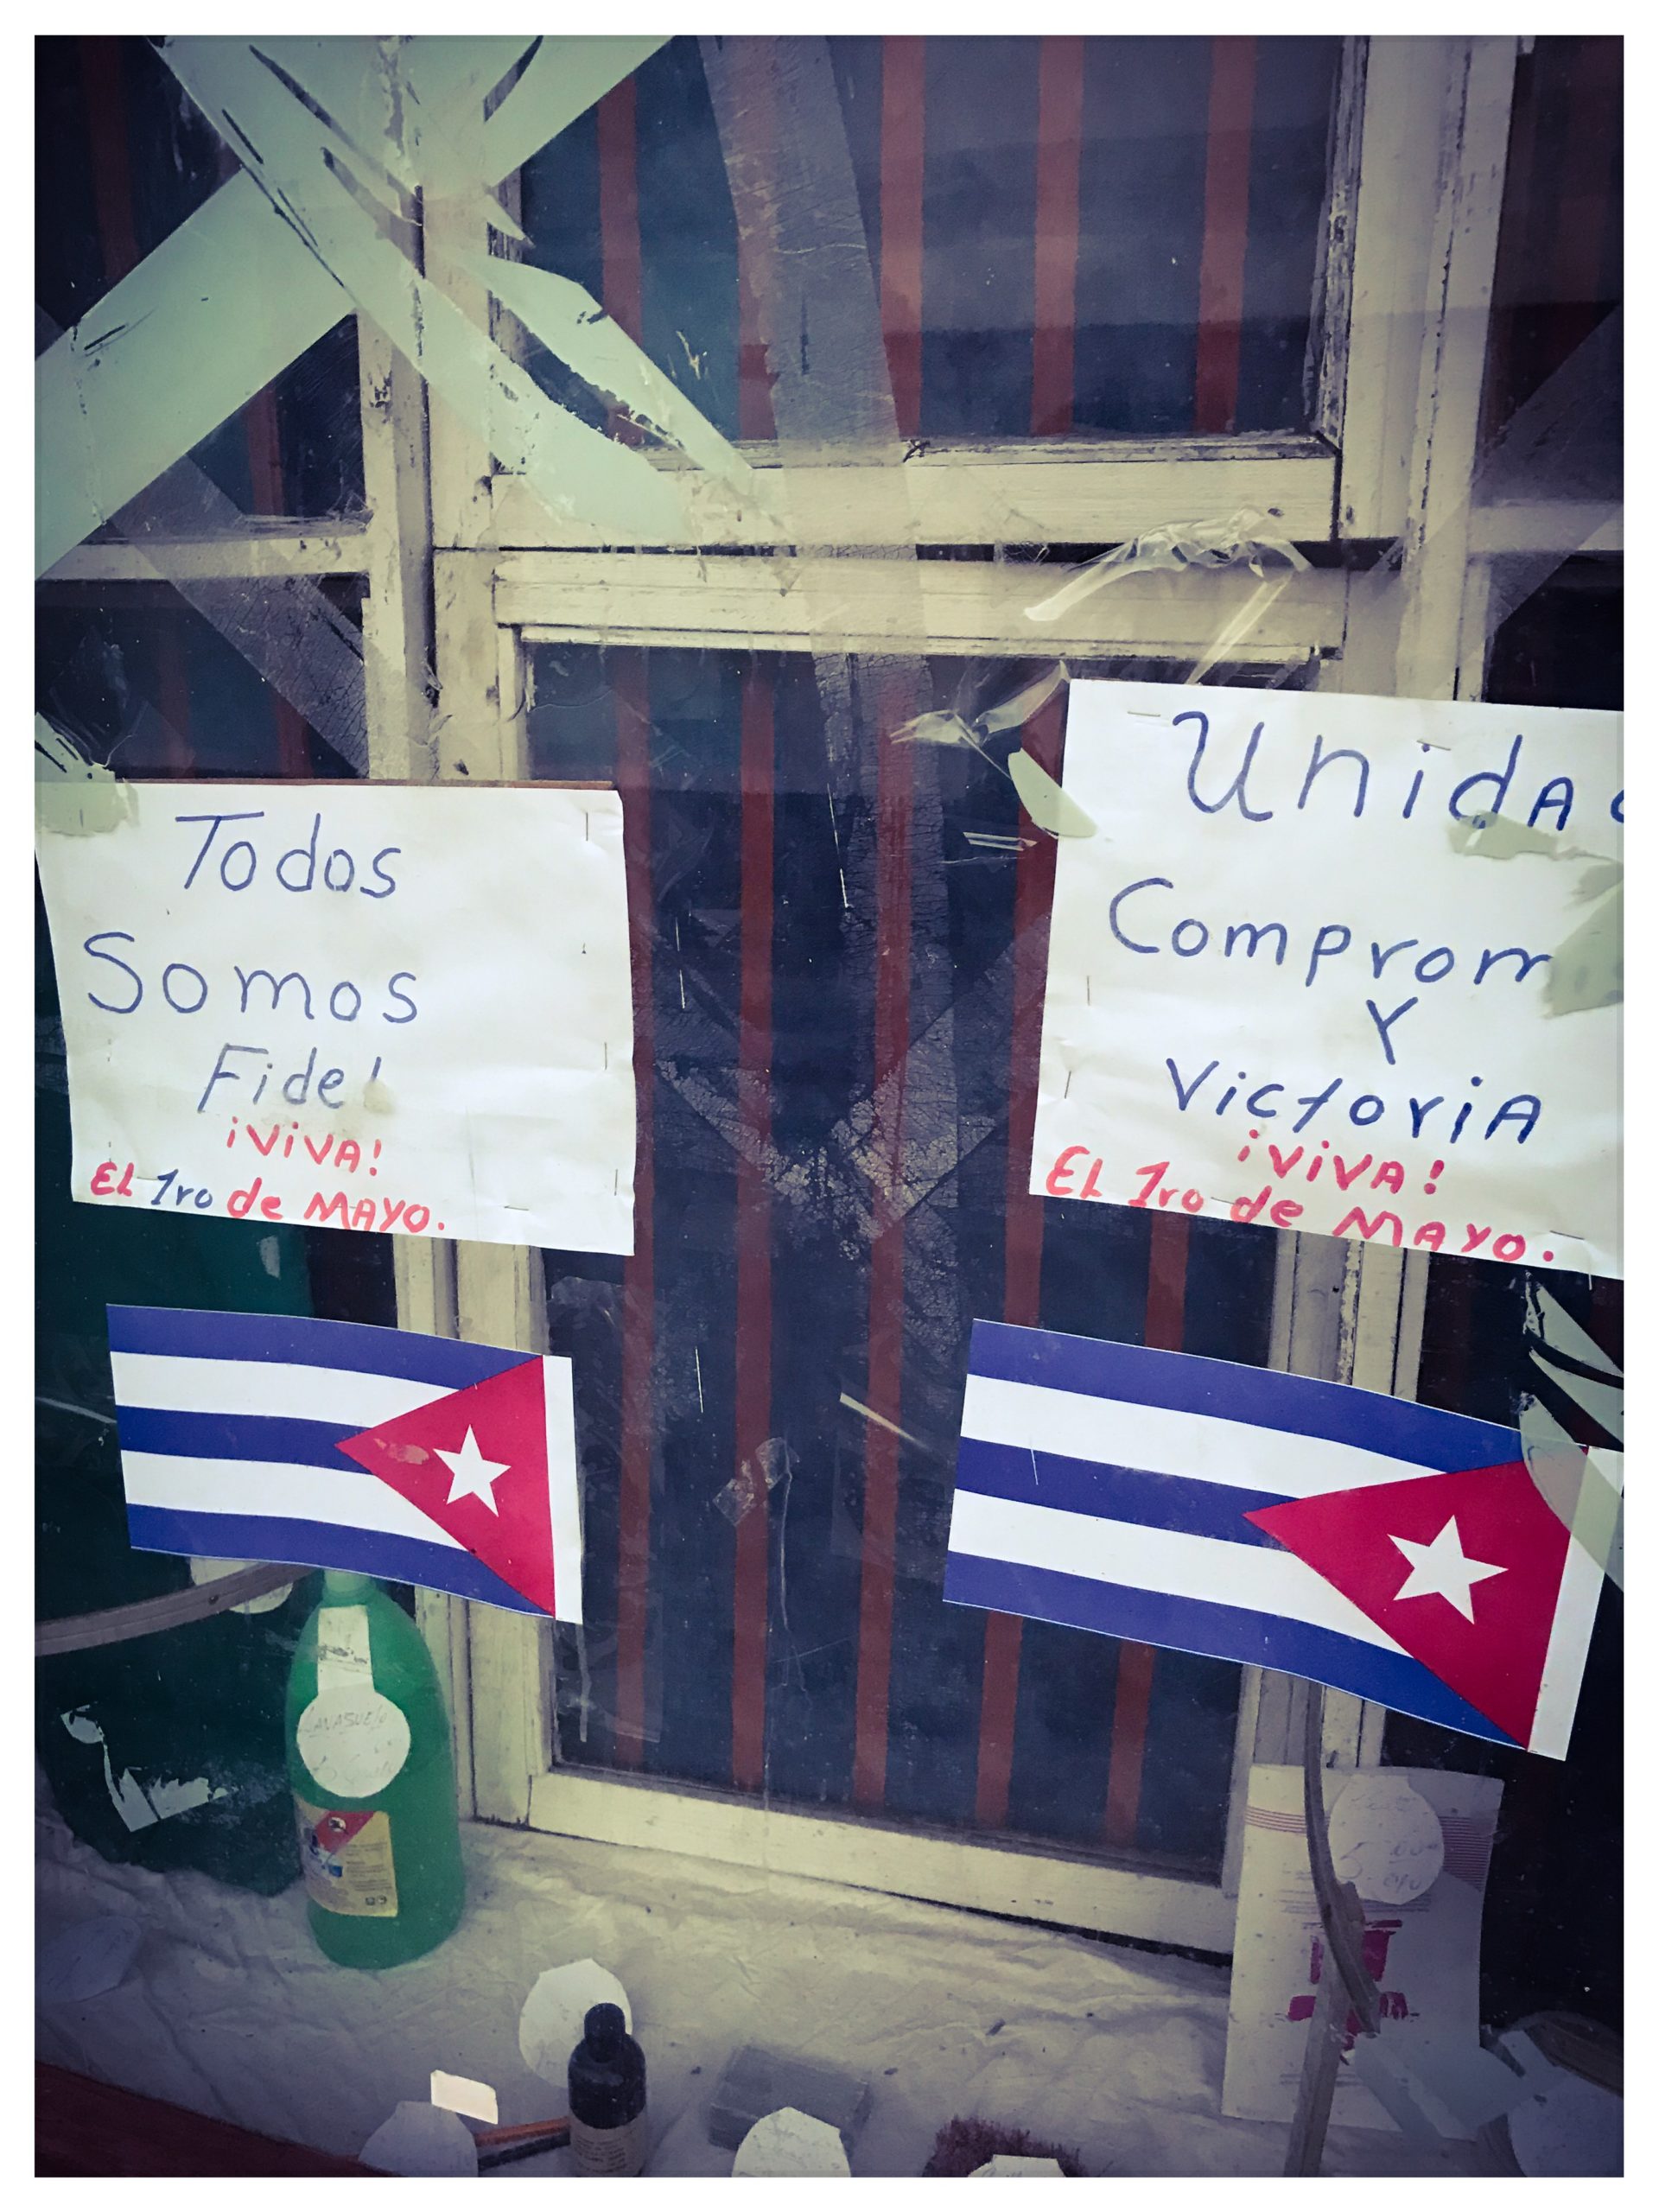 Todos
Somos
Fidel
¡VIVA!
EL 1ro de MAYO.
UnidA
Comprom
Y
VictoriA
¡VIVA!
EL 1ro de MAYO.